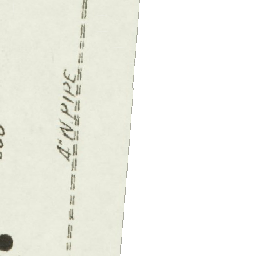 4" N. PIPE